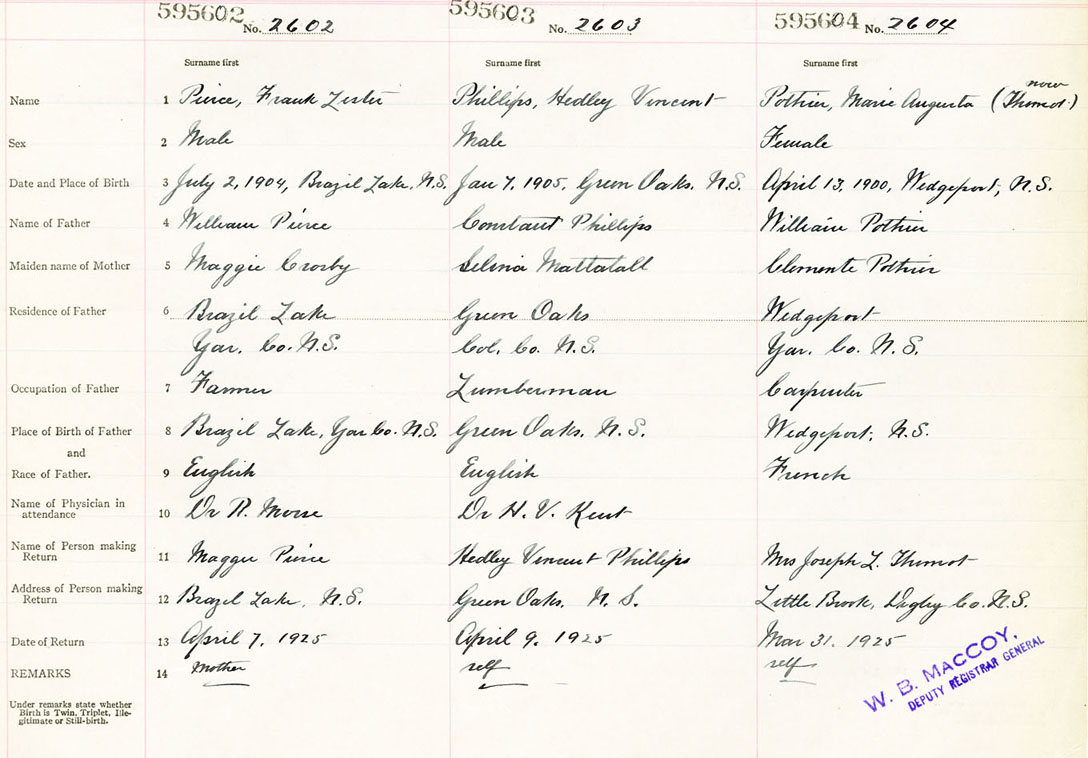 595602 No. 2602 595603 No. 2603 595604 No. 2604
Surname first Surname first Surname first
now
Name 1 Pierce, Frank Lester Phillips, Hedley Vincent Pothier, Marie Augusta (Thimot)
Sex 2 Male Male Female
Date and Place of Birth 3 July 2, 1904, Brazil Lake, N.S. Jan 7, 1905, Green Oaks, N.S. April 13, 1900, Wedgeport, N.S.
Name of Father 4 William Pierce Constant Phillips William Pothier
Maiden name of Mother 5 Maggie Crosby Selina Mattatall Clemente Pothier
Residence of Father 6 Brazil Lake Green Oaks Wedgeport
Yar. Co. N.S. Col. Co. N.S. Yar. Co. N.S.
Occupation of Father 7 Farmer Lumberman Carpenter
Place of Birth of Father 8 Brazil Lake, Yar Co. N.S. Green Oaks, N.S. Wedgeport, N.S.
and
Race of Father. 9 English English French
Name of Physician in
attendance 10 Dr R. Morse Dr H. V. Kent
Name of Person making
Return 11 Maggie Pierce Hedley Vincent Phillips Mrs Joseph L. Thimot
Address of Person making
Return 12 Brazil Lake, N.S. Green Oaks, N.S. Little Brook, Digby Co. N.S.
Date of Return 13 April 7, 1925 April 9, 1925 Mar 31, 1925
REMARKS 14 Mother self self
W. B. MACCOY,
DEPUTY REGISTRAR GENERAL
Under remarks state whether
Birth is Twin, Triplet, Ille-
gitimate or Still-birth.